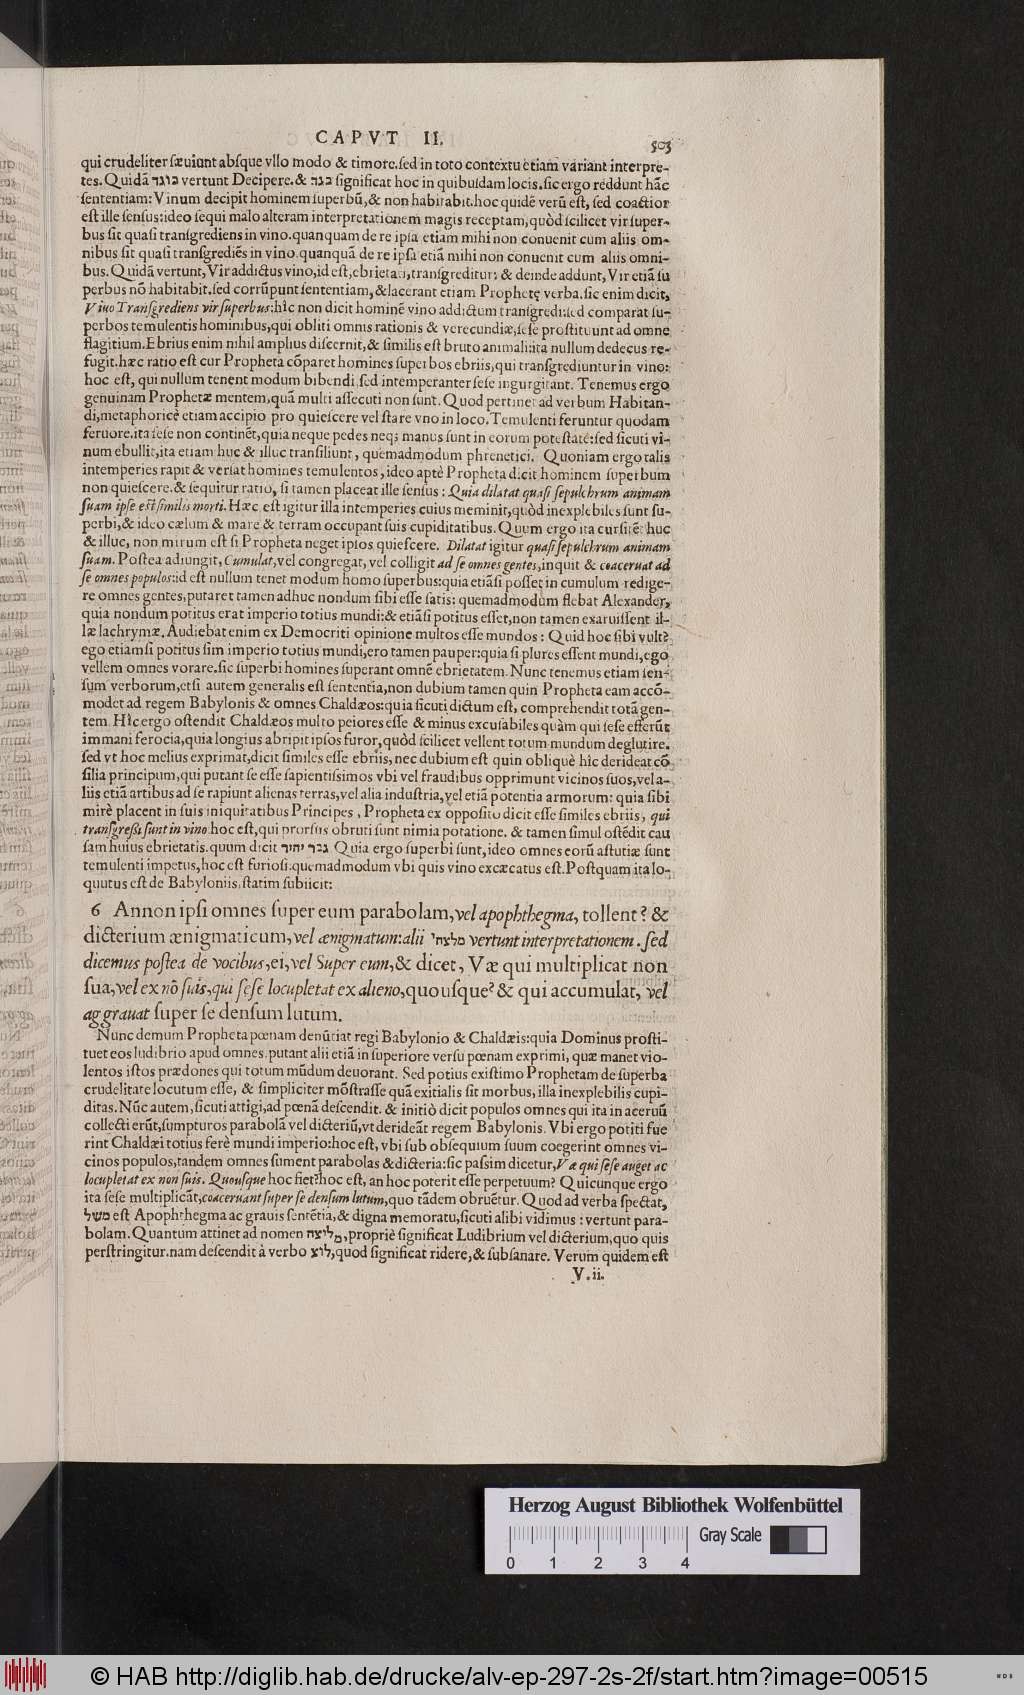 CAPVT II.
503
qui crudeliter sæuiunt absque vllo modo & timore. sed in toto contextu etiam variant interpre-
tes. Quidã בוגד vertunt Decipere. & בגד significat hoc in quibusdam locis. sic ergo reddunt hãc
sententiam: Vinum decipit hominem superbũ, & non habitabit. hoc quidẽ verũ est, sed coactior
est ille sensus: ideo sequi malo alteram interpretationem magis receptam, quòd scilicet vir super-
bus sit quasi transgrediens in vino. quanquam de re ipsa etiam mihi non conuenit cum aliis om-
nibus sit quasi transgrediẽs in vino. quanquã de re ipsa etiã mihi non conuenit cum aliis omni-
bus. Quidã vertunt, Vir addictus vino, id est, ebrietati, transgreditur: & deinde addunt, Vir etiã su
perbus nõ habitabit. sed corrũpunt sententiam, & lacerant etiam Prophetę verba. sic enim dicit,
Vino Transgrediens vir superbus: hîc non dicit hominẽ vino addictum transgredi: sed comparat su-
perbos temulentis hominibus, qui obliti omnis rationis & verecundiæ, sese prostituunt ad omne
flagitium. Ebrius enim nihil amplius discernit, & similis est bruto animali: ita nullum dedecus re-
fugit. hæc ratio est cur Propheta cõparet homines superbos ebriis, qui transgrediuntur in vino:
hoc est, qui nullum tenent modum bibendi, sed intemperanter sese ingurgitant. Tenemus ergo
genuinam Prophetæ mentem, quã multi assecuti non sunt. Quod pertinet ad verbum Habitan-
di, metaphoricè etiam accipio pro quiescere vel stare vno in loco. Temulenti feruntur quodam
feruore. ita sese non continẽt, quia neque pedes neq; manus sunt in eorum potestate: sed sicuti vi-
num ebullit, ita etiam huc & illuc transiliunt, quemadmodum phrenetici. Quoniam ergo talis
intemperies rapit & versat homines temulentos, ideo aptè Propheta dicit hominem superbum
non quiescere. & sequitur ratio, si tamen placeat ille sensus: Quia dilatat quasi sepulchrum animam
suam ipse est similis morti. Hæc est igitur illa intemperies cuius meminit, quòd inexplebiles sunt su-
perbi, & ideo cælum & mare & terram occupant suis cupiditatibus. Quum ergo ita cursitẽt huc
& illuc, non mirum est si Propheta neget ipsos quiescere. Dilatat igitur quasi sepulchrum animam
suam. Postea adiungit, Cumulat, vel congregat, vel colligit ad se omnes gentes, inquit & coaceruat ad
se omnes populos: id est nullum tenet modum homo superbus: quia etiãsi posset in cumulum redige-
re omnes gentes, putaret tamen adhuc nondum sibi esse satis: quemadmodum flebat Alexander,
quia nondum potitus erat imperio totius mundi: & etiãsi potitus esset, non tamen exaruissent il-
læ lachrymæ. Audiebat enim ex Democriti opinione multos esse mundos: Quid hoc sibi vult?
ego etiamsi potitus sim imperio totius mundi, ero tamen pauper: quia si plures essent mundi, ego
vellem omnes vorare. sic superbi homines superant omnẽ ebrietatem. Nunc tenemus etiam sen-
sum verborum, etsi autem generalis est sententia, non dubium tamen quin Propheta eam accõ-
modet ad regem Babylonis & omnes Chaldæos: quia sicuti dictum est, comprehendit totã gen-
tem. Hîc ergo ostendit Chaldæos multo peiores esse & minus excusabiles quàm qui sese efferũt
immani ferocia, quia longius abripit ipsos furor, quòd scilicet vellent totum mundum deglutire.
sed vt hoc melius exprimat, dicit similes esse ebriis, nec dubium est quin obliquè hîc derideat cõ
silia principum, qui putant se esse sapientissimos vbi vel fraudibus opprimunt vicinos suos, vel a-
liis etiã artibus ad se rapiunt alienas terras, vel alia industria, vel etiã potentia armorum: quia sibi
mirè placent in suis iniquitatibus Principes, Propheta ex opposito dicit esse similes ebriis, qui
transgressi sunt in vino hoc est, qui prorsus obruti sunt nimia potatione. & tamen simul ostẽdit cau
sam huius ebrietatis. quum dicit גבר יהיר Quia ergo superbi sunt, ideo omnes eorũ astutiæ sunt
temulenti impetus, hoc est furiosi: quemadmodum vbi quis vino excæcatus est. Postquam ita lo-
quutus est de Babyloniis, statim subiicit:
6 Annon ipsi omnes super eum parabolam, vel apophthegma, tollent? &
dicterium ænigmaticum, vel ænigmatum: alii מלצתי vertunt interpretationem. sed
dicemus postea de vocibus, ei, vel Super eum, & dicet, Væ qui multiplicat non
sua, vel ex nõ suis, qui sese locupletat ex alieno, quousque? & qui accumulat, vel
aggrauat super se densum lutum.
Nunc demum Propheta pœnam denũtiat regi Babylonio & Chaldæis: quia Dominus prosti-
tuet eos ludibrio apud omnes. putant alii etiã in superiore versu pœnam exprimi, quæ manet vio-
lentos istos prædones qui totum mũdum deuorant. Sed potius existimo Prophetam de superba
crudelitate locutum esse, & simpliciter mõstrasse quã exitialis sit morbus, illa inexplebilis cupi-
ditas. Nũc autem, sicuti attigi, ad pœnã descendit. & initiò dicit populos omnes qui ita in aceruũ
collecti erũt, sumpturos parabolã vel dicteriũ, vt derideãt regem Babylonis. Vbi ergo potiti fue
rint Chaldæi totius ferè mundi imperio: hoc est, vbi sub obsequium suum coegerint omnes vi-
cinos populos, tandem omnes sument parabolas & dicteria: sic passim dicetur, Væ qui sese auget ac
locupletat ex non suis. Quousque hoc fiet? hoc est, an hoc poterit esse perpetuum? Quicunque ergo
ita sese multiplicãt, coaceruant super se densum lutum, quo tãdem obruẽtur. Quod ad verba spectat,
משל est Apophthegma ac grauis sentẽtia, & digna memoratu, sicuti alibi vidimus: vertunt para-
bolam. Quantum attinet ad nomen מליצה, propriè significat Ludibrium vel dicterium, quo quis
perstringitur. nam descendit à verbo לוץ, quod significat ridere, & subsanare. Verum quidem est
V.ii.
Herzog August Bibliothek Wolfenbüttel
Gray Scale
0 1 2 3 4
© HAB http://diglib.hab.de/drucke/alv-ep-297-2s-2f/start.htm?image=00515